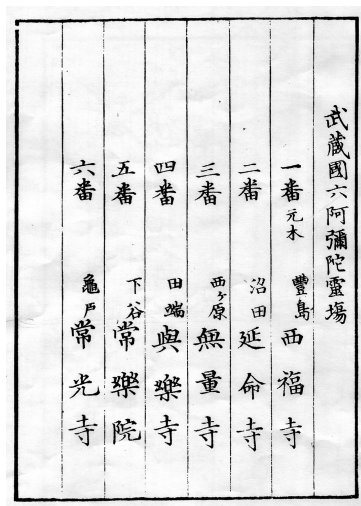 武蔵國六阿彌陀霊場
一番元木 豐島西福寺
二番 沼田延命寺
三番 西ヶ原無量寺
四番 田端與樂寺
五番 下谷常樂院
六番 龜戸常光寺